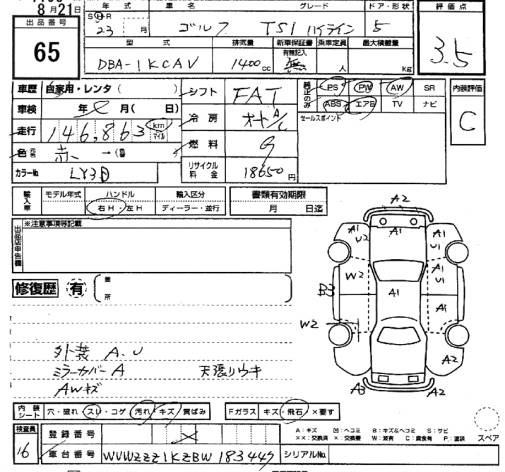 8月21日
出品番号
65
年式 車名 グレード ドア・形状
S H R
23 月 ゴルフ TSI ハイライン 5
型式 排気量 新車保証書 乗車定員 最大積載量
有無記入
DBA-1KCAV 1400cc 無 人 kg
評価点
3.5
車歴 自家用・レンタ( )
車検 年 月( 日)
走行 146,863 km マイル
色 赤 →(
カラーNo LY3D
シフト FAT
冷房 オートA/C
燃料 G
リサイクル料金 18600円
PS PW AW SR
ABS エアB TV ナビ
セールスポイント
内装評価
C
輸入車
モデル年式 ハンドル 輸入区分
右H・左H ディーラー・並行
書類有効期限
月 日迄
出品店申告欄
※注意事項等記載
修復歴 有 箇所
外装 A.U
ミラーカバーA 天張リウキ
AWキズ
A2
A1 U2 A1 A1 U1
W2 A1 U1
B3 A1
W2 A1
A2
A3 A2
内装シート 穴・破れ スレ・コゲ 汚れ・キズ 黄ばみ
Fガラス キズ 飛石 ×要す
A:キズ U:ヘコミ B:キズ&ヘコミ S:サビ
××:交換済 ×:交換要 W:波有 C:腐食有 P:塗装
スペア
検査員
16
登録番号
車台番号 WVWZZZ1KZBW183449
シリアルNo.